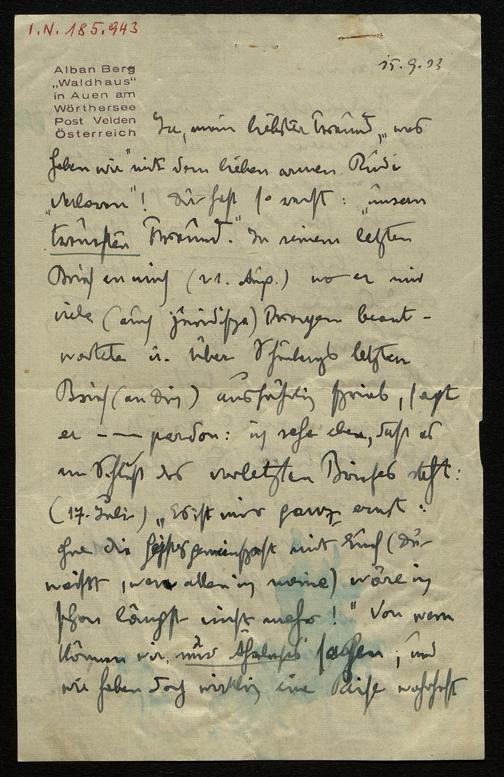 I.N. 185.943
15.9.33
Alban Berg
„Waldhaus"
in Auen am
Wörthersee
Post Velden
Österreich
Ja, mein liebster Freund, „was
haben wir" mit dem lieben armen Rudi
„verloren"! Du hast so recht: „unsern
treuesten Freund." In seinem letzten
Brief an mich (21. Aug.) wo er mir
viele (auch juridische) Fragen beant-
wortete u. über Schönbergs letzten
Brief (an Dich) ausführlich schrieb, sagt
er —— pardon: ich sehe eben, daß es
am Schluß des vorletzten Briefes steht:
(17. Juli) „Es ist mir ganz ernst:
ohne die Geistesgemeinschaft mit Euch (Du
weißt, wen allen ich meine) wäre ich
schon längst nicht mehr!" Von wem
können wir nur Ähnliches sagen; und
wir haben doch wirklich eine Reihe wahrhaft